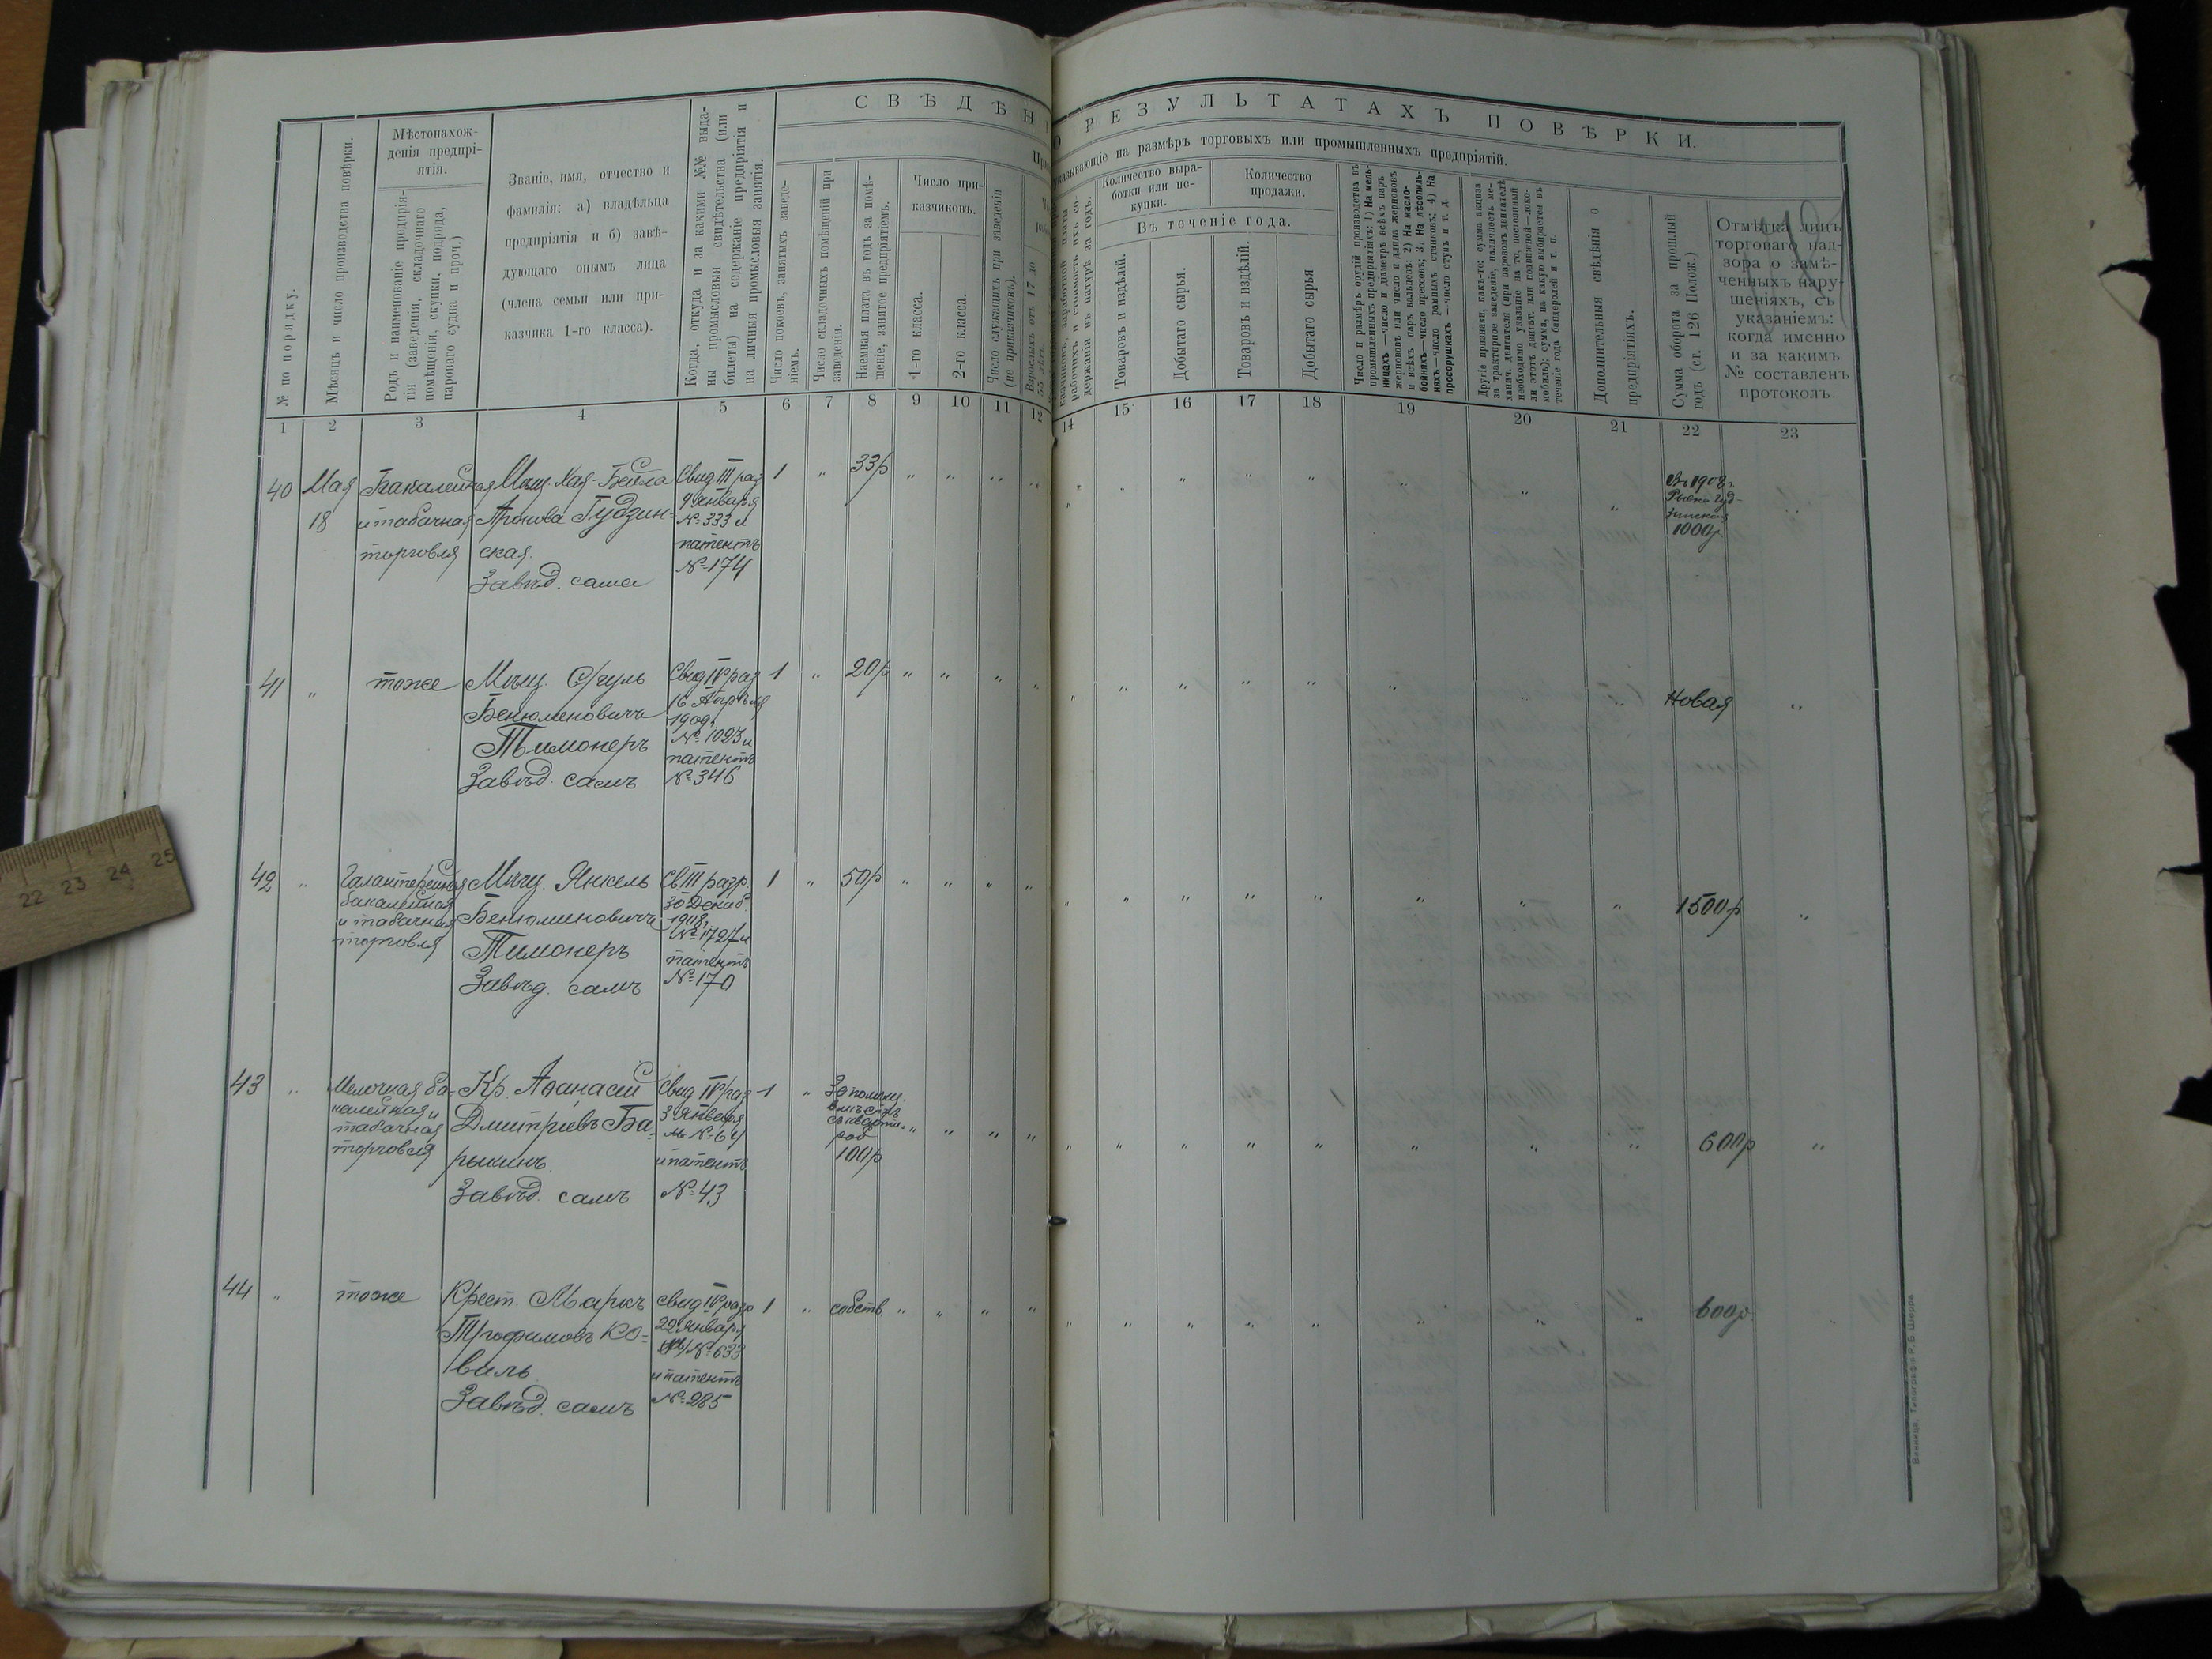 СВѢДѢН
О РЕЗУЛЬТАТАХЪ ПОВѢРКИ.
указывающіе на размѣръ торговыхъ или промышленныхъ предпріятій.
№ по порядку.
Мѣсяцъ и число производства повѣрки.
Мѣстонахож-
денія предпрі-
ятія.
Родъ и наименованіе предпрія-
тія (заведенія, складочнаго
помѣщенія, скупки, подряда,
пароваго судна и проч.)
Званіе, имя, отчество и
фамилія: а) владѣльца
предпріятія и б) завѣ-
дующаго онымъ лица
(члена семьи или при-
казчика 1-го класса).
Когда, откуда и за какими №№ выда-
ны промысловыя свидѣтельства (или
билеты) на содержаніе предпріятія и
на личныя промысловыя занятія.
Число покоевъ, занятыхъ заведе-
ніемъ.
Число складочныхъ помѣщеній при
заведеніи.
Наемная плата въ годъ за помѣ-
щеніе, занятое предпріятіемъ.
Число при-
казчиковъ.
1-го класса.
2-го класса.
Число служащихъ при заведеніи
(не приказчиковъ).
Взрослыхъ отъ 17 до
55 лѣтъ.
рабочихъ и стоимость ихъ со-
держанія въ натурѣ за годъ.
Количество выра-
ботки или по-
купки.
Количество
продажи.
Въ теченіе года.
Товаровъ и издѣлій.
Добытаго сырья.
Товаровъ и издѣлій.
Добытаго сырья
Число и размѣръ орудій производства въ
промышленныхъ предпріятіяхъ: 1) На мель-
ницахъ—число и діаметръ всѣхъ паръ
жернововъ или число и длина жернововъ
и всѣхъ паръ вальцевъ: 2) На масло-
бойняхъ—число прессовъ; 3) На лѣсопиль-
няхъ—число рамныхъ станковъ; 4) На
просорушкахъ—число ступъ и т. д.
Другіе признаки, какъ-то: сумма акциза
за трактирное заведеніе, наличность ме-
ханич. двигателя (при паровомъ двигателѣ
необходимо указаніе на то, постоянный
ли этотъ двигат. или подвижной—локо-
мобиль); сумма, на какую выбирается въ
теченіе года бандеролей и т. п.
Дополнительныя свѣдѣнія о
предпріятіяхъ.
Сумма оборота за прошлый
годъ (ст. 126 Полож.)
Отмѣтка лицъ
торговаго над-
зора о замѣ-
ченныхъ нару-
шеніяхъ, съ
указаніемъ:
когда именно
и за какимъ
№ составленъ
протоколъ.
1 2 3 4 5 6 7 8 9 10 11 12 14 15 16 17 18 19 20 21 22 23
40
Мая
18
Бакалейная
и табачная
торговля
Мѣщ. Хая-Бейла
Аронова Гудзин-
ская.
Завѣд. сама
Свид III раз
9 января
№ 333 и
патентъ
№ 174
1 " 33р " " " " " " " " " " "
Въ 1908 г.
1000р.
41 "
тоже
Мѣщ. Сруль
Бенюменовичъ
Тимонеръ
Завѣд. самъ
Свид IV раз
16 Апрѣля
1909 г.
№ 1023 и
патентъ
№ 346
1 " 20р " " " " " " " " " " " "
Новая "
42 "
Галантерейная
бакалейная
и табачная
торговля
Мѣщ. Янкель
Бенюминовичъ
Тимонеръ
Завѣд. самъ
Св III разр.
30 Декаб.
1908 г.
№ 1727 и
патентъ
№ 170
1 " 50р " " " " " " " " " " " "
1500р "
43 "
Мелочная ба-
калейная и
табачная
торговля
Кр. Афанасій
Дмитріевъ Ба-
рыкинъ
Завѣд. самъ
Свид IV раз
3 Января
№ 64
и патентъ
№ 43
1 "
вмѣстѣ
съ кварти-
рой
100р
" " " " " " " " " " " "
600р "
44 "
тоже
Крест. Маркъ
Трофимовъ Ко-
валь
Завѣд. самъ
Свид IV разр
22 Января
№ 633
и патентъ
№ 285
1 " собств " " " " " " " " " " " "
600р.
Винница, Типографія Р. Б. Шерра
22 23 24 25